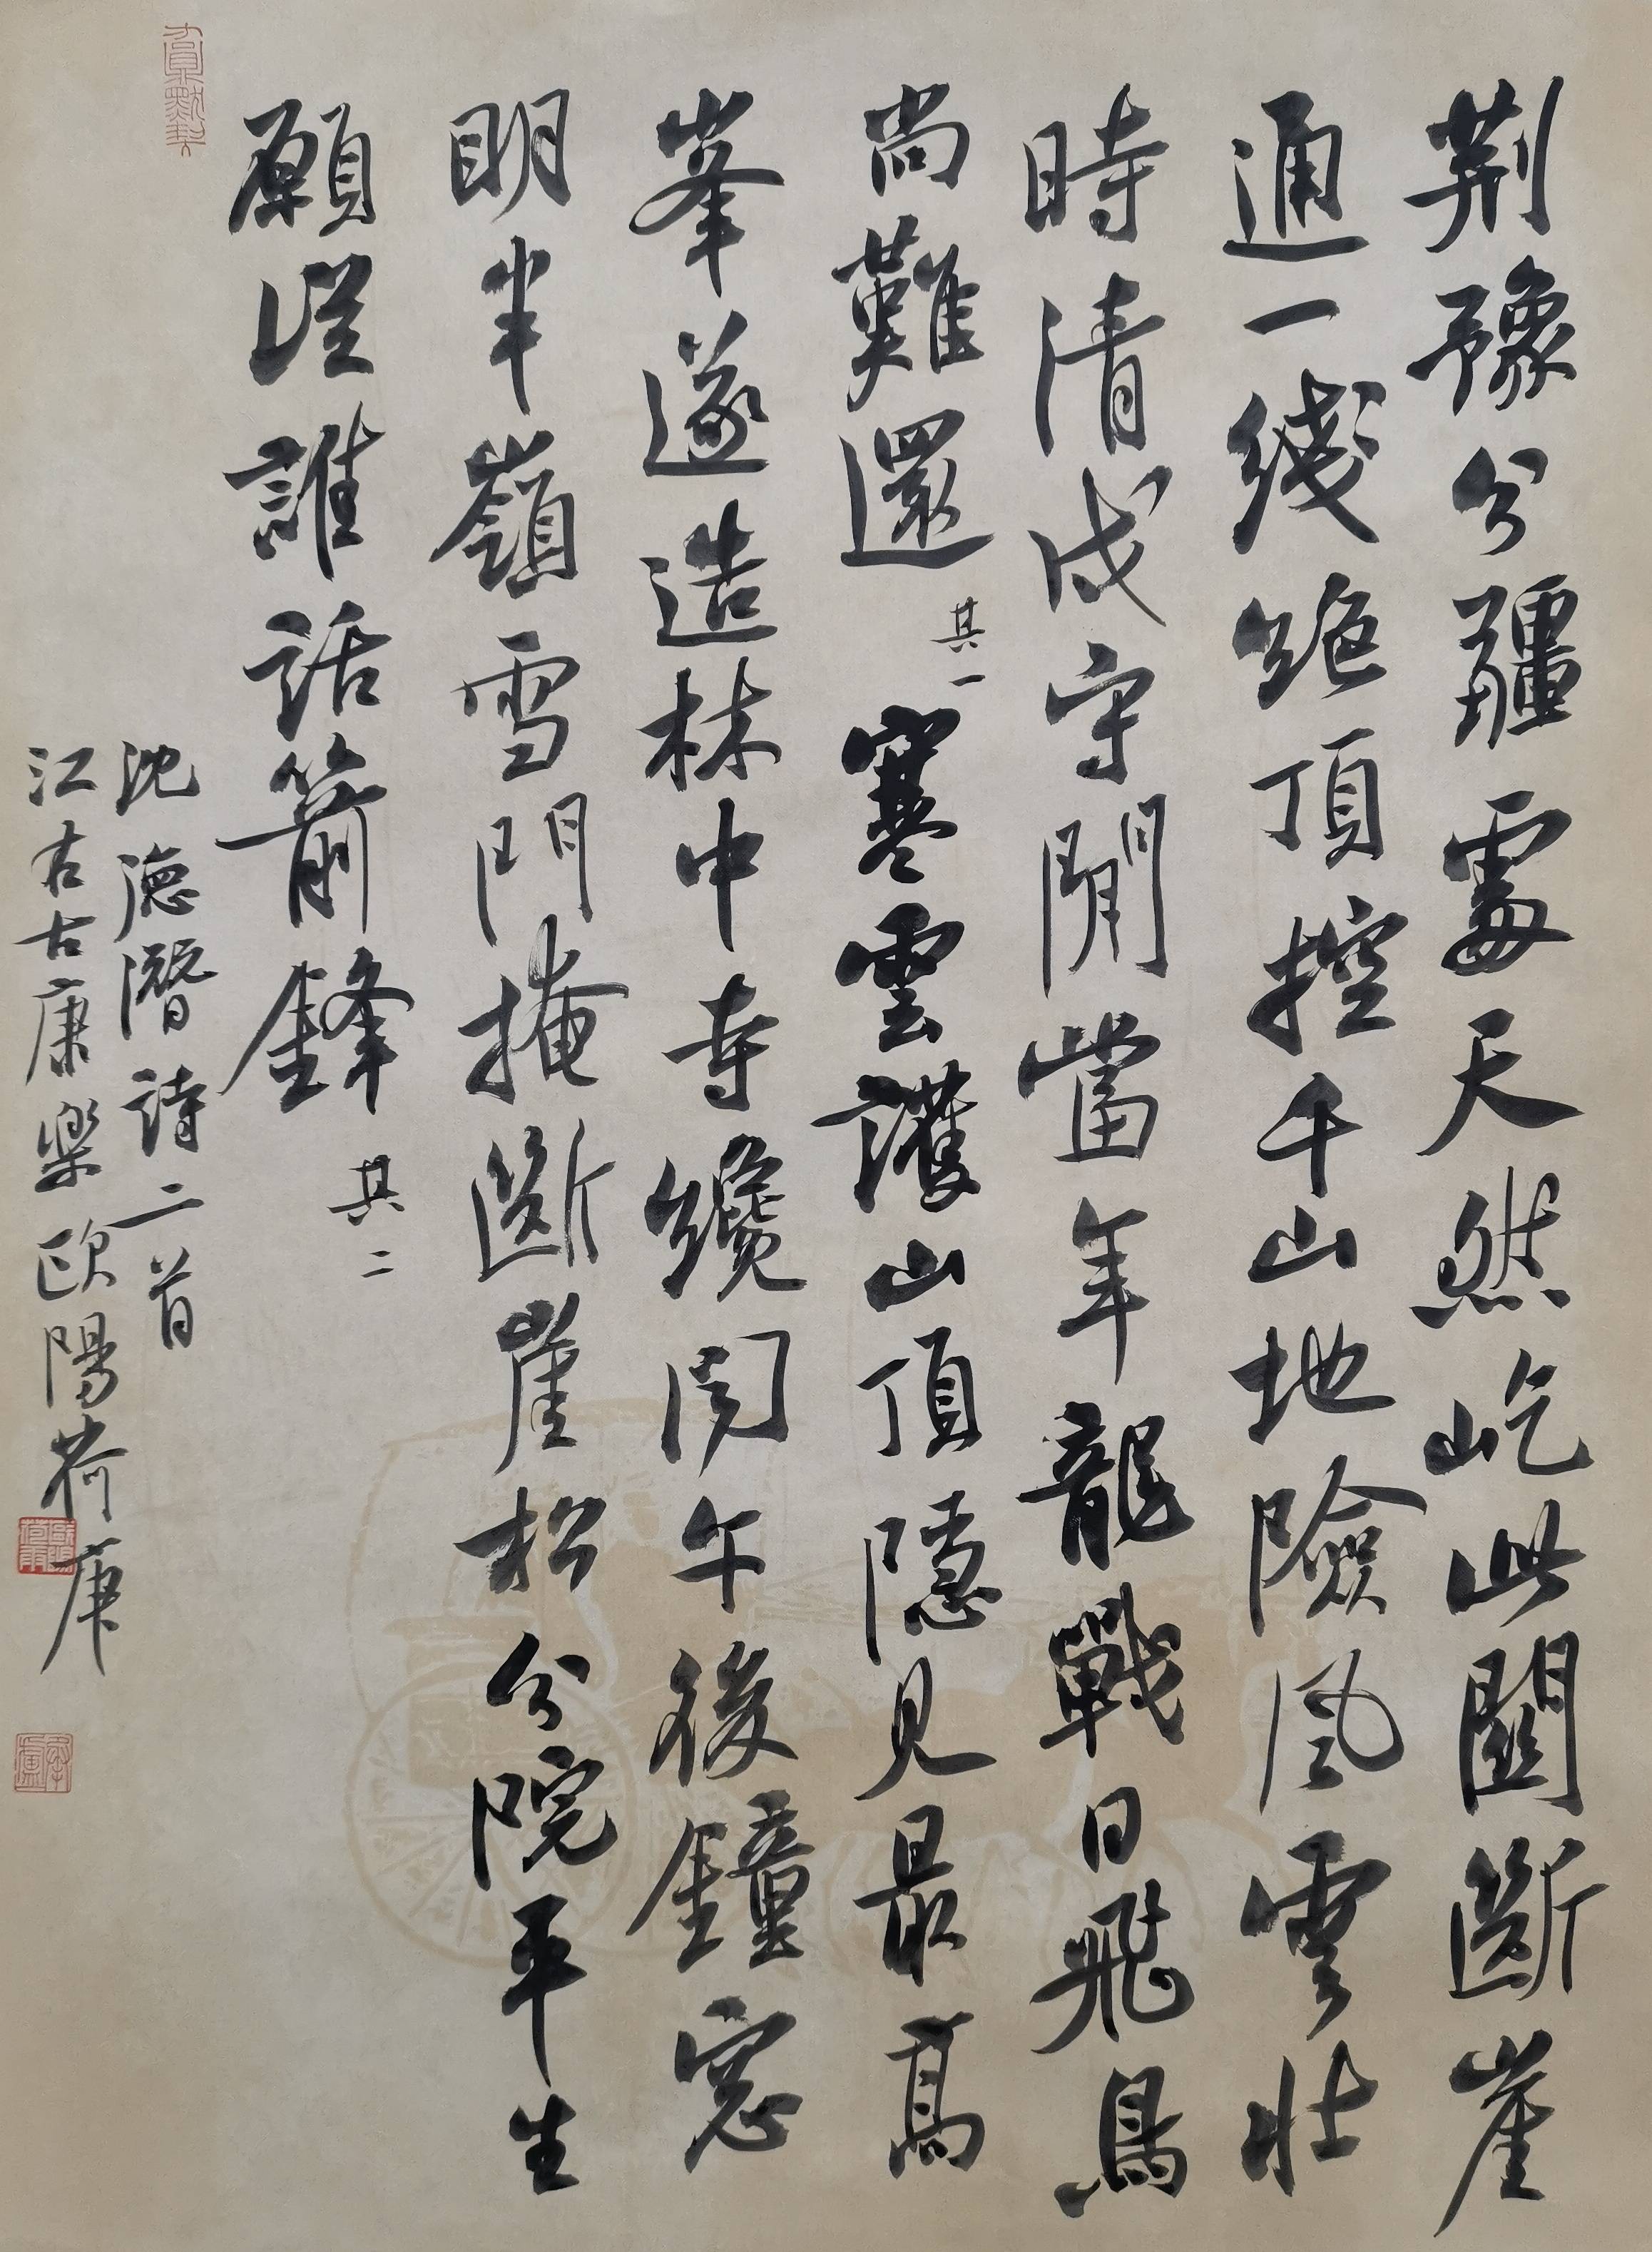 荆豫分疆處天然屹此關斷崖
通一綫絶頂控千山地險風雲壯
時清戍守閒當年龍戰日飛鳥
尚難還 其一 寒雲護山頂隱見最高
峯遂造林中寺纔聞午後鐘窓
明半嶺雪門掩斷崖松分院平生
願從誰話箭鋒 其二
沈德潛詩二首
江右古康樂歐陽荷庚